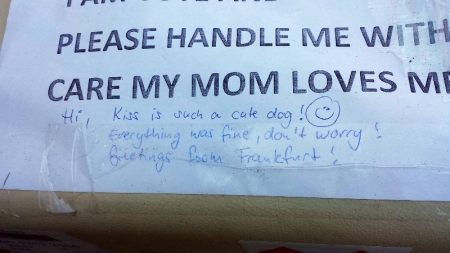 PLEASE HANDLE ME WITH
CARE MY MOM LOVES ME
Hi, Kiss is such a cute dog! ☺
Everything was fine, don't worry!
Greetings from Frankfurt!